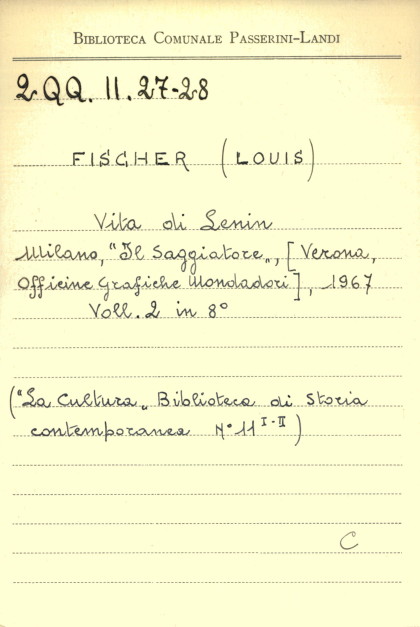 BIBLIOTECA COMUNALE PASSERINI-LANDI
2QQ. II. 27-28
FISCHER (LOUIS)
Vita di Lenin
Milano, "Il Saggiatore„, [Verona,
Officine Grafiche Mondadori], 1967
Voll. 2 in 8°
("La Cultura„ Biblioteca di Storia
contemporanea N° 11 I-II)
C